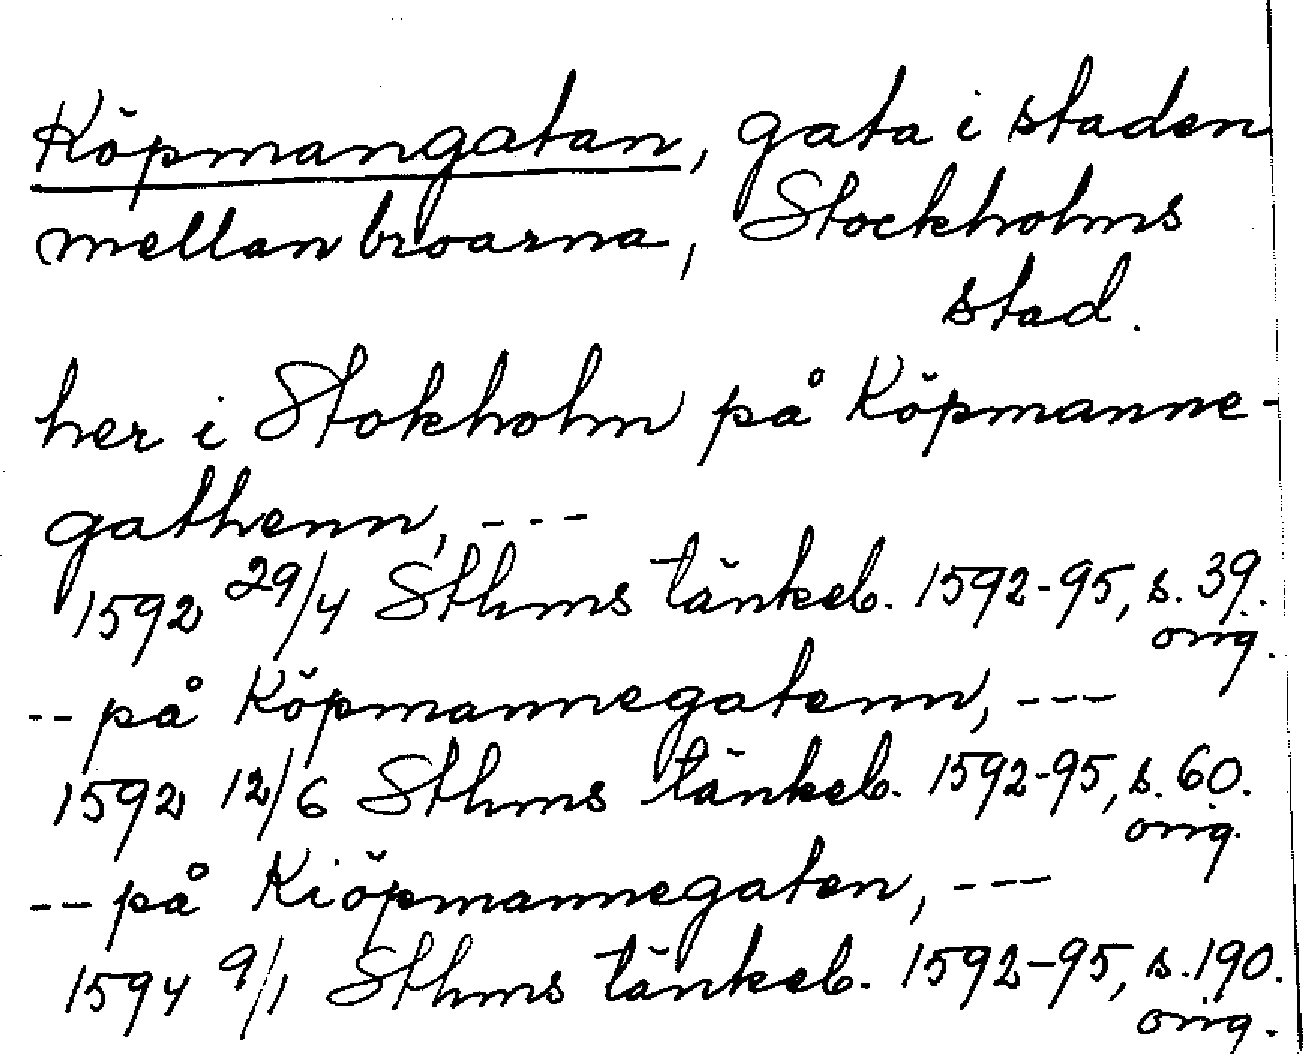 Köpmangatan, gata i staden
mellan broarna, Stockholms
stad.
her i Stokholm på Köpmanne-
gathenn, ---
1592 29/4 Sthms tänkeb. 1592-95, s. 39.
orig.
-- på Köpmannegatenn, ---
1592 12/6 Sthms tänkeb. 1592-95, s. 60.
orig.
-- på Kiöpmannegaten, ---
1594 9/1 Sthms tänkeb. 1592-95, s. 190.
orig.